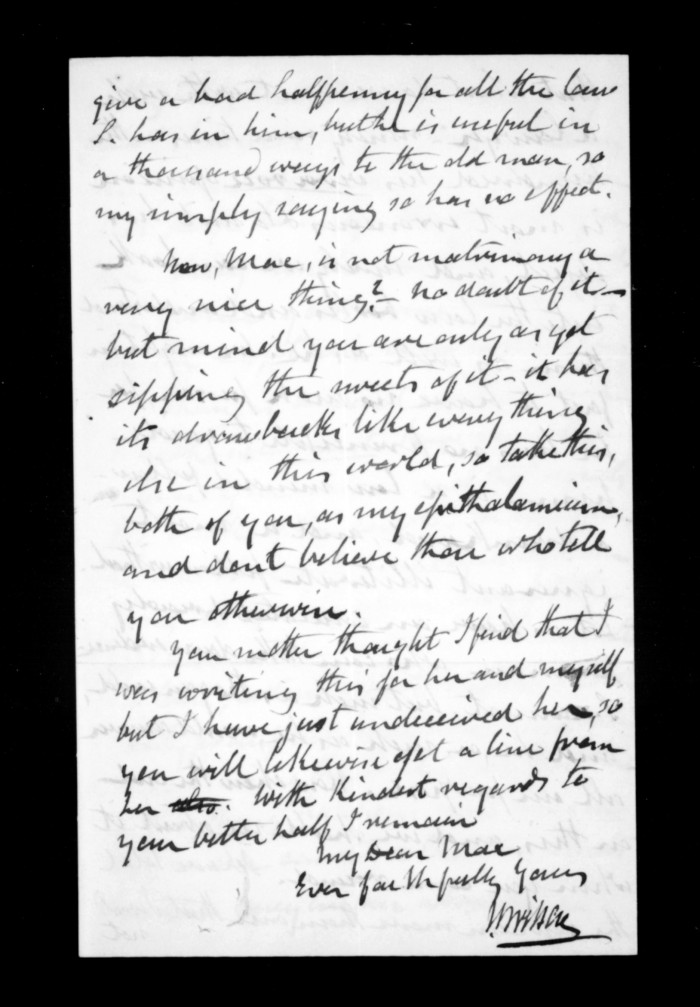 give a bad halfpenny for all the law
S. has in him, but he is useful in
a thousand ways to the old man, so
my simply saying so has no effect.
Now, Mac, is not matrimony a
very nice thing? - no doubt of it -
but mind you are only as yet
sipping the sweets of it - it has
its drawbacks like every thing
else in this world, so take this,
both of you, as my epithalamium,
and dont believe those who tell
you otherwise.
Your mother thought I find that I
was writing this for her and myself
but I have just undeceived her, so
you will likewise get a line from
her also. With kindest regards to
your better half I remain
My Dear Mac
Ever faithfully yours